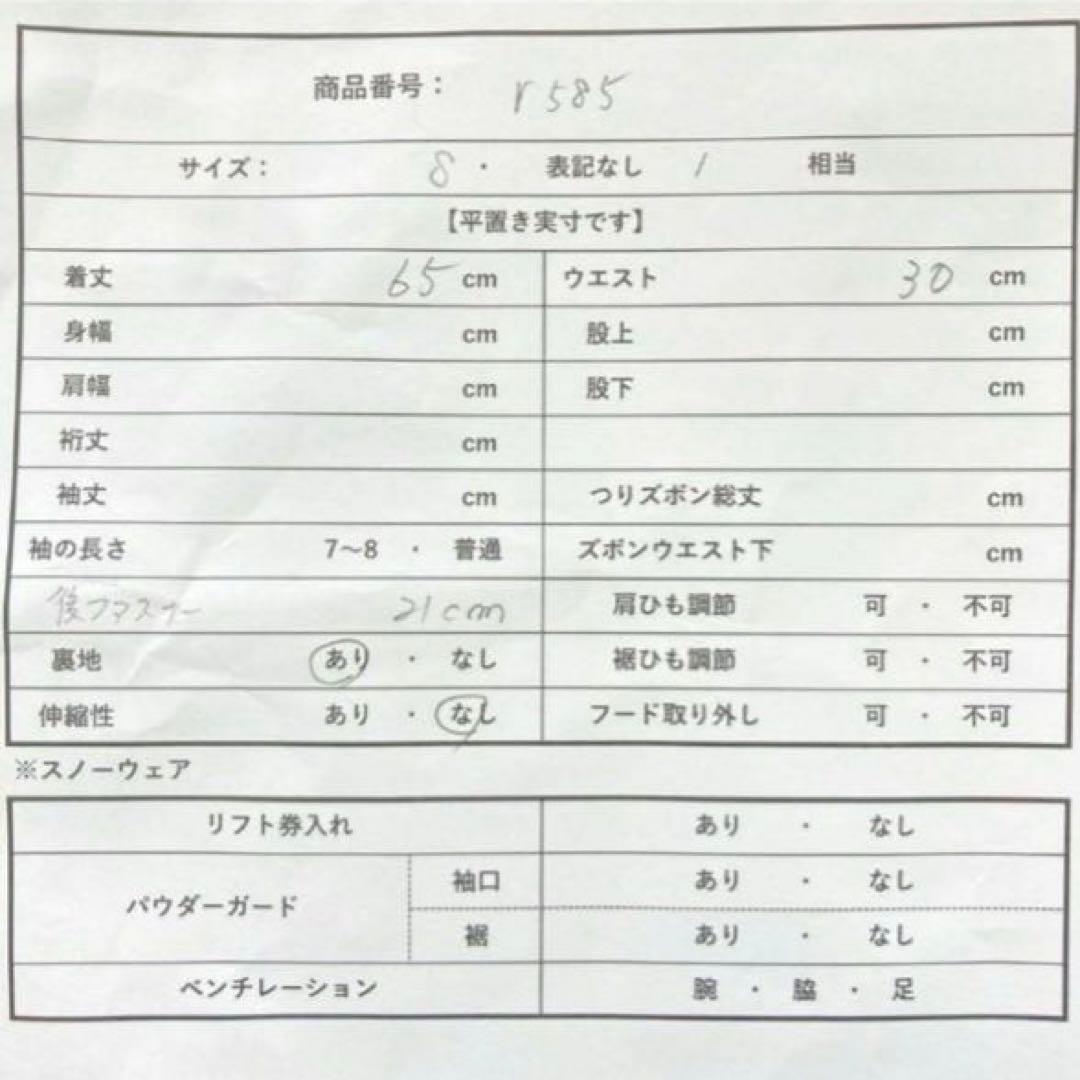 商品番号: r585
サイズ: 8 ・ 表記なし / 相当
【平置き実寸です】
着丈 65 cm ウエスト 30 cm
身幅 cm 股上 cm
肩幅 cm 股下 cm
裄丈 cm
袖丈 cm つりズボン総丈 cm
袖の長さ 7〜8 ・ 普通 ズボンウエスト下 cm
後ファスナー 21cm 肩ひも調節 可 ・ 不可
裏地 あり ・ なし 裾ひも調節 可 ・ 不可
伸縮性 あり ・ なし フード取り外し 可 ・ 不可
※スノーウェア
リフト券入れ あり ・ なし
パウダーガード 袖口 あり ・ なし
裾 あり ・ なし
ベンチレーション 腕 ・ 脇 ・ 足